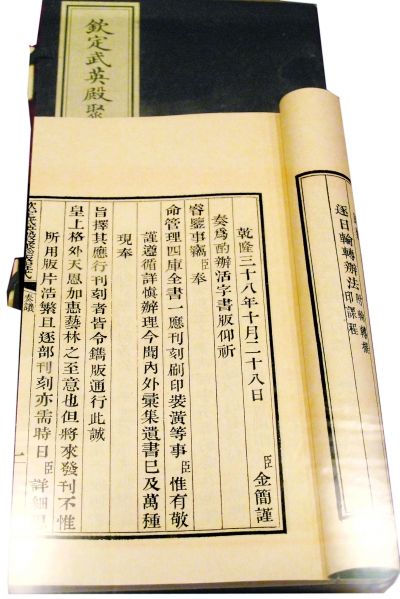 欽定武英殿聚
逐日輪轉辦法
乾隆三十八年十月二十八日
臣金簡謹
奏爲酌辦活字書版仰祈
睿鑒事竊臣奉
命管理四庫全書一應刊刻刷印裝潢等事臣惟有敬
謹遵循詳愼辦理今聞內外彙集遺書已及萬種
現奉
旨擇其應行刊刻者皆令鐫版通行此誠
皇上格外天恩加惠藝林之至意也但將來發刊不惟
所用版片浩繁且逐部刊刻亦需時日臣詳細
奏議
一